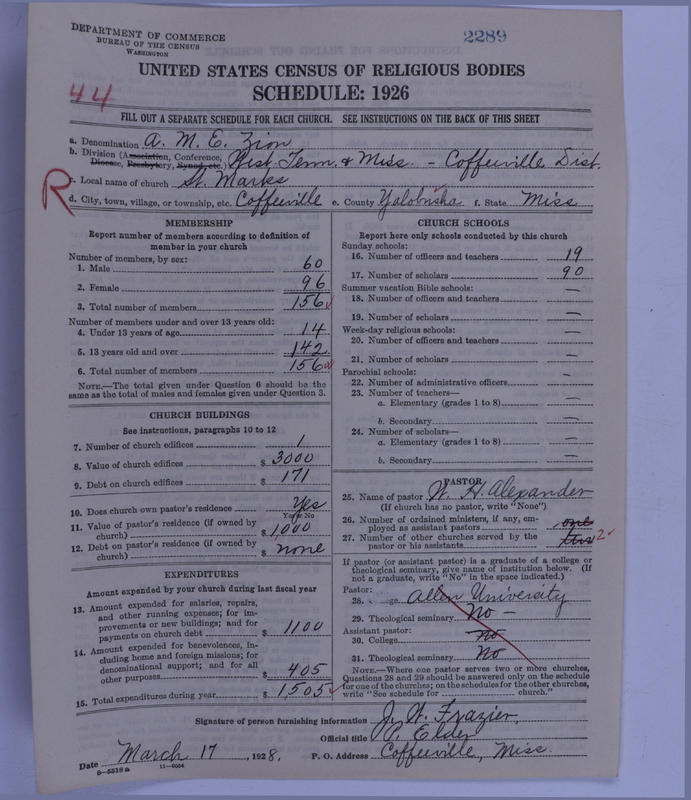 DEPARTMENT OF COMMERCE
BUREAU OF THE CENSUS
WASHINGTON
2289
UNITED STATES CENSUS OF RELIGIOUS BODIES
44
SCHEDULE: 1926
FILL OUT A SEPARATE SCHEDULE FOR EACH CHURCH. SEE INSTRUCTIONS ON THE BACK OF THIS SHEET
a. Denomination A. M. E. Zion
b. Division (Association, Conference, West Tenn. & Miss. - Coffeeville Dist.
Diocese, Presbytery, Synod, etc.)
R
c. Local name of church St. Marks
d. City, town, village, or township, etc. Coffeeville e. County Yalobusha f. State Miss
MEMBERSHIP
Report number of members according to definition of
member in your church
Number of members, by sex:
1. Male 60
2. Female 96
3. Total number of members 156
Number of members under and over 13 years old:
4. Under 13 years of age 14
5. 13 years old and over 142
6. Total number of members 156
NOTE.—The total given under Question 6 should be the
same as the total of males and females given under Question 3.
CHURCH BUILDINGS
See instructions, paragraphs 10 to 12
7. Number of church edifices 1
8. Value of church edifices $ 3000
9. Debt on church edifices $ 171
10. Does church own pastor's residence Yes
Yes or No
11. Value of pastor's residence (if owned by
church) $ 1,000
12. Debt on pastor's residence (if owned by
church) $ none
EXPENDITURES
Amount expended by your church during last fiscal year
13. Amount expended for salaries, repairs,
and other running expenses; for im-
provements or new buildings; and for
payments on church debt $ 1100
14. Amount expended for benevolences, in-
cluding home and foreign missions; for
denominational support; and for all
other purposes $ 405
15. Total expenditures during year $ 1505
CHURCH SCHOOLS
Report here only schools conducted by this church
Sunday schools:
16. Number of officers and teachers 19
17. Number of scholars 90
Summer vacation Bible schools:
18. Number of officers and teachers —
19. Number of scholars —
Week-day religious schools:
20. Number of officers and teachers —
21. Number of scholars —
Parochial schools:
22. Number of administrative officers —
23. Number of teachers—
a. Elementary (grades 1 to 8) —
b. Secondary —
24. Number of scholars—
a. Elementary (grades 1 to 8) —
b. Secondary —
PASTOR
25. Name of pastor W. H. Alexander
(If church has no pastor, write "None")
26. Number of ordained ministers, if any, em-
ployed as assistant pastors one
27. Number of other churches served by the
pastor or his assistants 2
If pastor (or assistant pastor) is a graduate of a college or
theological seminary, give name of institution below. (If
not a graduate, write "No" in the space indicated.)
Pastor:
28. Allen University
29. Theological seminary No -
Assistant pastor:
30. College No
31. Theological seminary No
NOTE.—Where one pastor serves two or more churches,
Questions 28 and 29 should be answered only on the schedule
for one of the churches; on the schedules for the other churches,
write "See schedule for church."
Signature of person furnishing information J. W. Frazier,
Official title P. Elder
Date March 17, 1928. P. O. Address Coffeeville, Miss.
8-5518a 11-9054